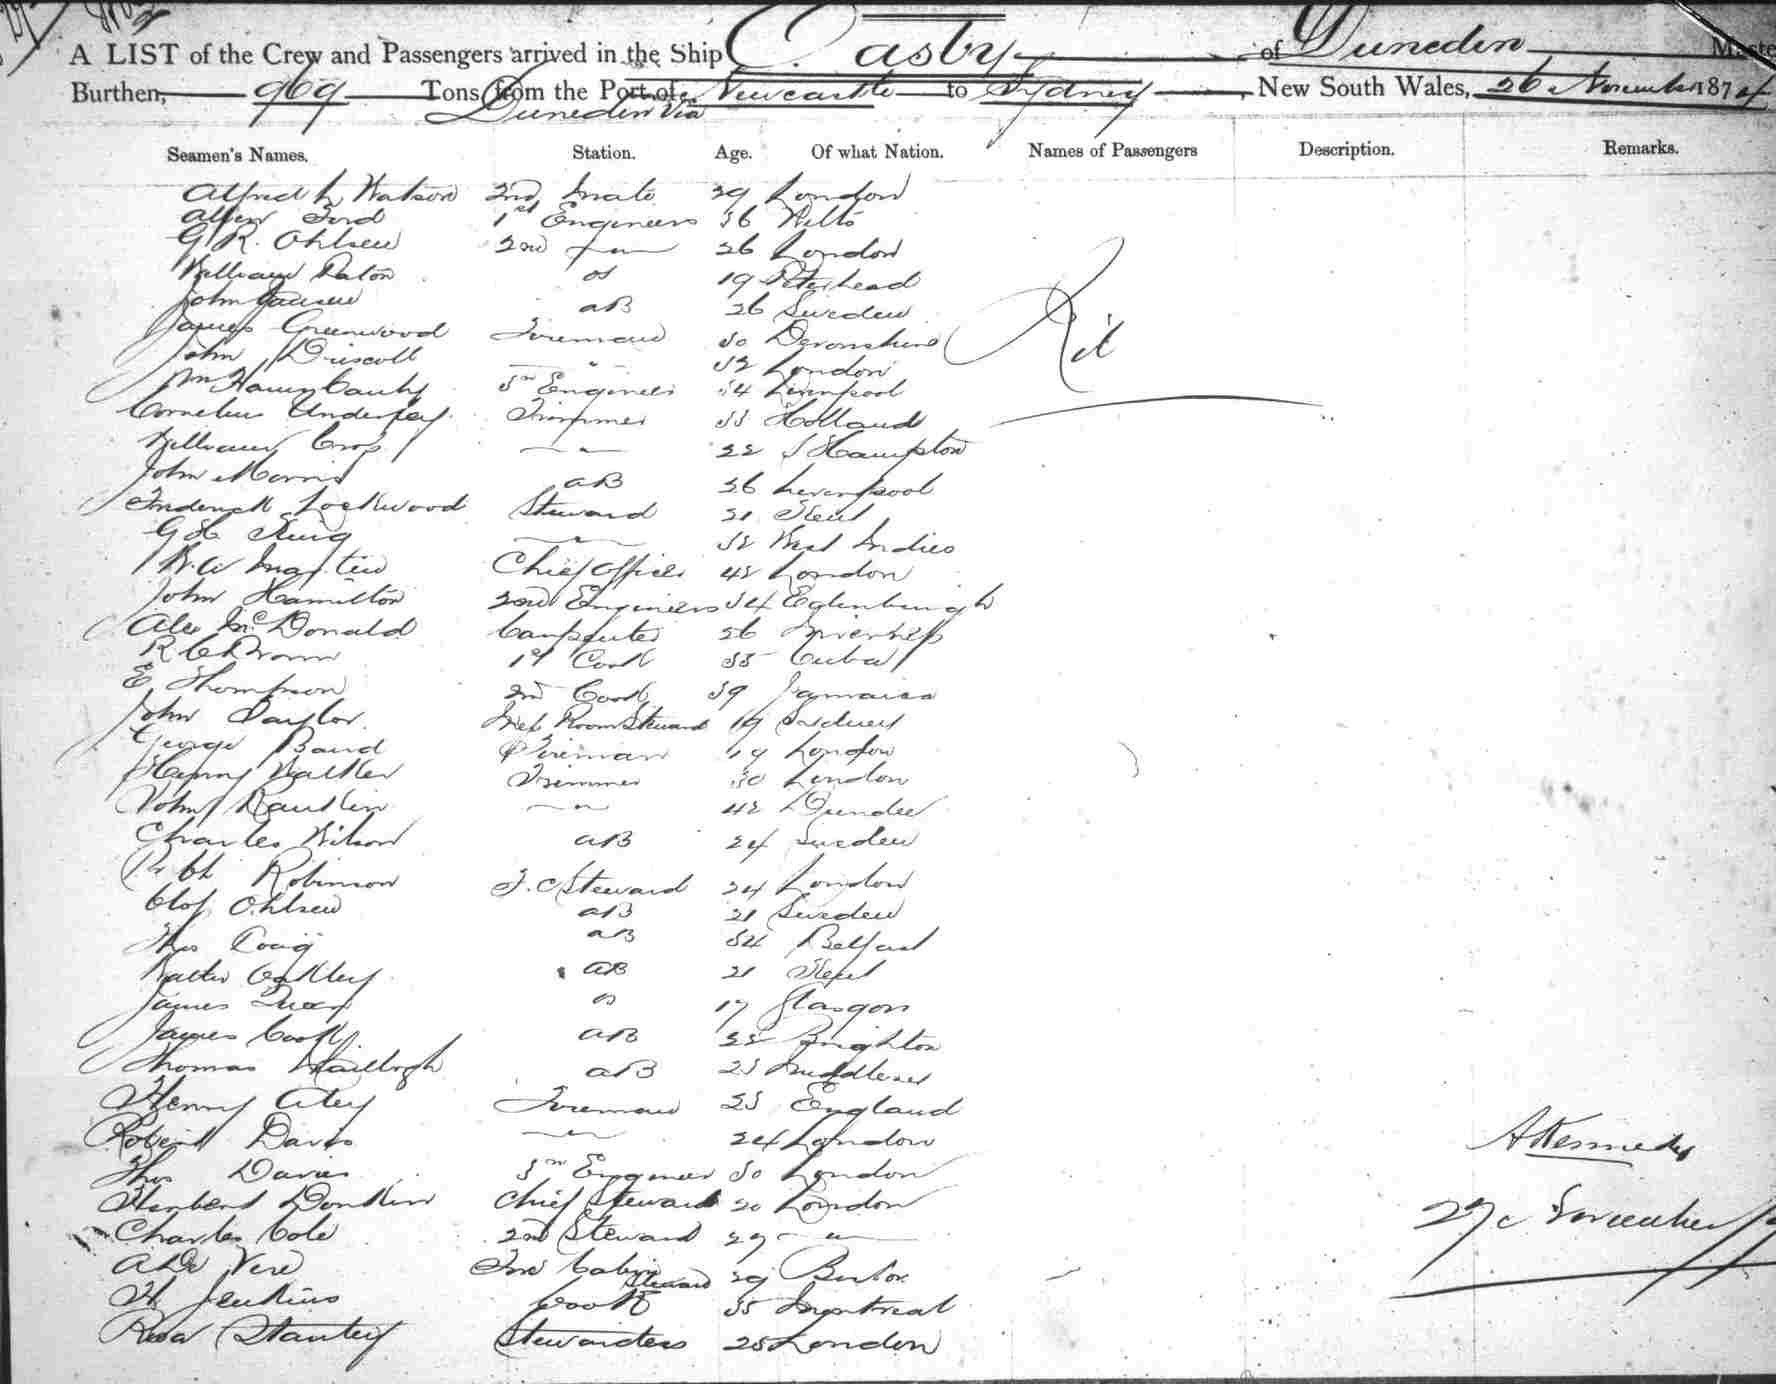 A LIST of the Crew and Passengers arrived in the Ship Easby of Dunedin Maste
Burthen, 969 Tons from the Port of Newcastle to Sydney New South Wales, 26 November 187
Dunedin via
Seamen's Names. Station. Age. Of what Nation. Names of Passengers Description. Remarks.
Alfred Watson 2nd Mate 29 London
Allen Ford 1st Engineers 36 Wilts
G R. Ohlsen 2nd " 26 London
William Paton os 19 Peterhead
John Jansen aB 26 Sweden
James Greenwood Foreman 30 Devonshire
Nil
John Driscoll " 32 London
Wm Henry 3rd Engineer 34 Liverpool
Cornelius Trimmer 33 Holland
William Cross " 22 S Hampton
John Morris aB 26 Liverpool
Frederick Lockwood Steward 21 Kent
G H King " 32 West Indies
W. A Martin Chief Officer 42 London
John Hamilton 2nd Engineers 34 Edinburgh
Alex McDonald Carpenter 26 Inverness
R C Brown 1st Cook 35 Cuba
E Thompson 2nd Cook 39 Jamaica
John Taylor Mess Room Steward 19 Sydney
George Baird Fireman 19 London
Henry Walker Trimmer 30 London
John Rankin " 42 Dundee
Charles Wilson aB 24 Sweden
Robt Robinson F. C Steward 24 London
Olof Ohlsen aB 21 Sweden
Thos Craig aB 34 Belfast
Walter Oakley aB 21 Kent
James os 17 Glasgow
James Cook aB 22 Brighton
Thomas aB 23 Middlesex
Henry Atey Foreman 23 England
Robert Davis " 24 London
A Kennedy
Thos Davies 3rd Engineer 30 London
Herbert Donkin Chief Steward 20 London
27 November
Charles Cole 2nd Steward 27 "
A De Vere Fore Cabin Steward 29
H Jenkins Cook 35 Montreal
Rosa Stanley Stewardess 25 London